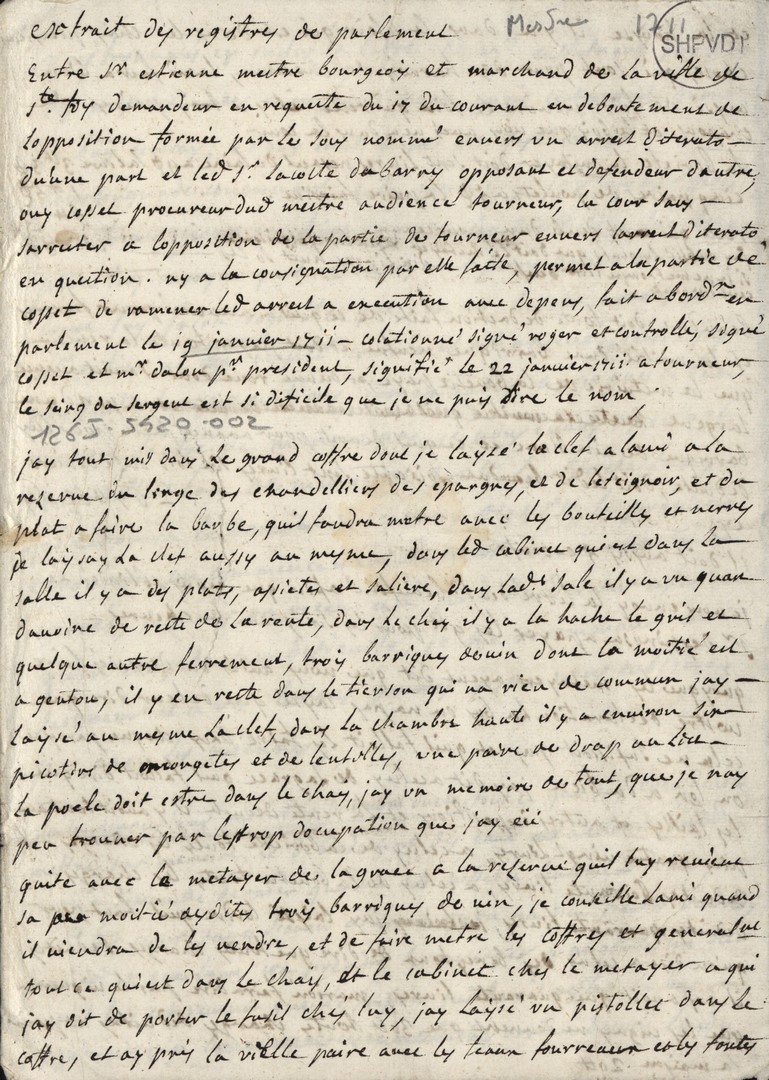 extrait des registres de parlement
Mestre 1711
SHPVDT
Entre sr estienne mestre bourgeois et marchand de la ville de
ste foy demandeur en requeste du 17 du courant en deboutement de
lopposition formée par le sous nommé envers un arrest diterato
d'une part et led sr lacoste dubarry opposant et defendeur dautre,
ouy cosset procureur dud mestre audience tourneur, la cour sans
sarrester a lopposition de la partie de tourneur envers larrest diterato
en question. ny a la consignation par elle faite, permet a la partie de
cosset de ramener led arrest a execution avec depens, fait a bordx en
parlement le 19 janvier 1711 - colationné signé roger et controllé, signé
cosset et mr dalon pr president, signifié le 22 janvier 1711 a tourneur,
le seing du sergent est si dificile que je ne puis dire le nom,
1265-5950-002
jay tout mis dans le grand coffre dont je laissé la clef a lami a la
reserve du linge des chandelliers des epargnes, et de leteignoir, et du
plat a faire la barbe, quil faudra metre avec les bouteilles et verres
je laissay la clef aussy au mesme, dans led cabinet qui est dans la
salle il y a des plats, assietes et saliere, dans lade sale il y a un quan
davoine de reste de la rente, dans le chay il y a la hache le gril et
quelque autre ferrement, trois barriques de vin dont la moitié est
a gentou, il y en reste dans le tierson qui na rien de commun jay
laissé au mesme la clef, dans la chambre haute il y a environ six
picotins de mongetes et de lentilles, une paire de drap au lit
la poele doit estre dans le chais, jay un memoire de tout, que je nay
peu trouver par le trop docupation que jay eü
quite avec le metayer de la grace a la reserve quil luy revient
sa moitié desdites trois barriques de vin, je conseille lami quand
il viendra de les vendre, et de faire metre les coffres et generalnt
tout ce qui est dans le chais, et le cabinet chés le metayer a qui
jay dit de porter le fusil chés luy, jay laissé un pistollet dans le
coffre, et ay pris la vieille paire avec les fourreaux et les